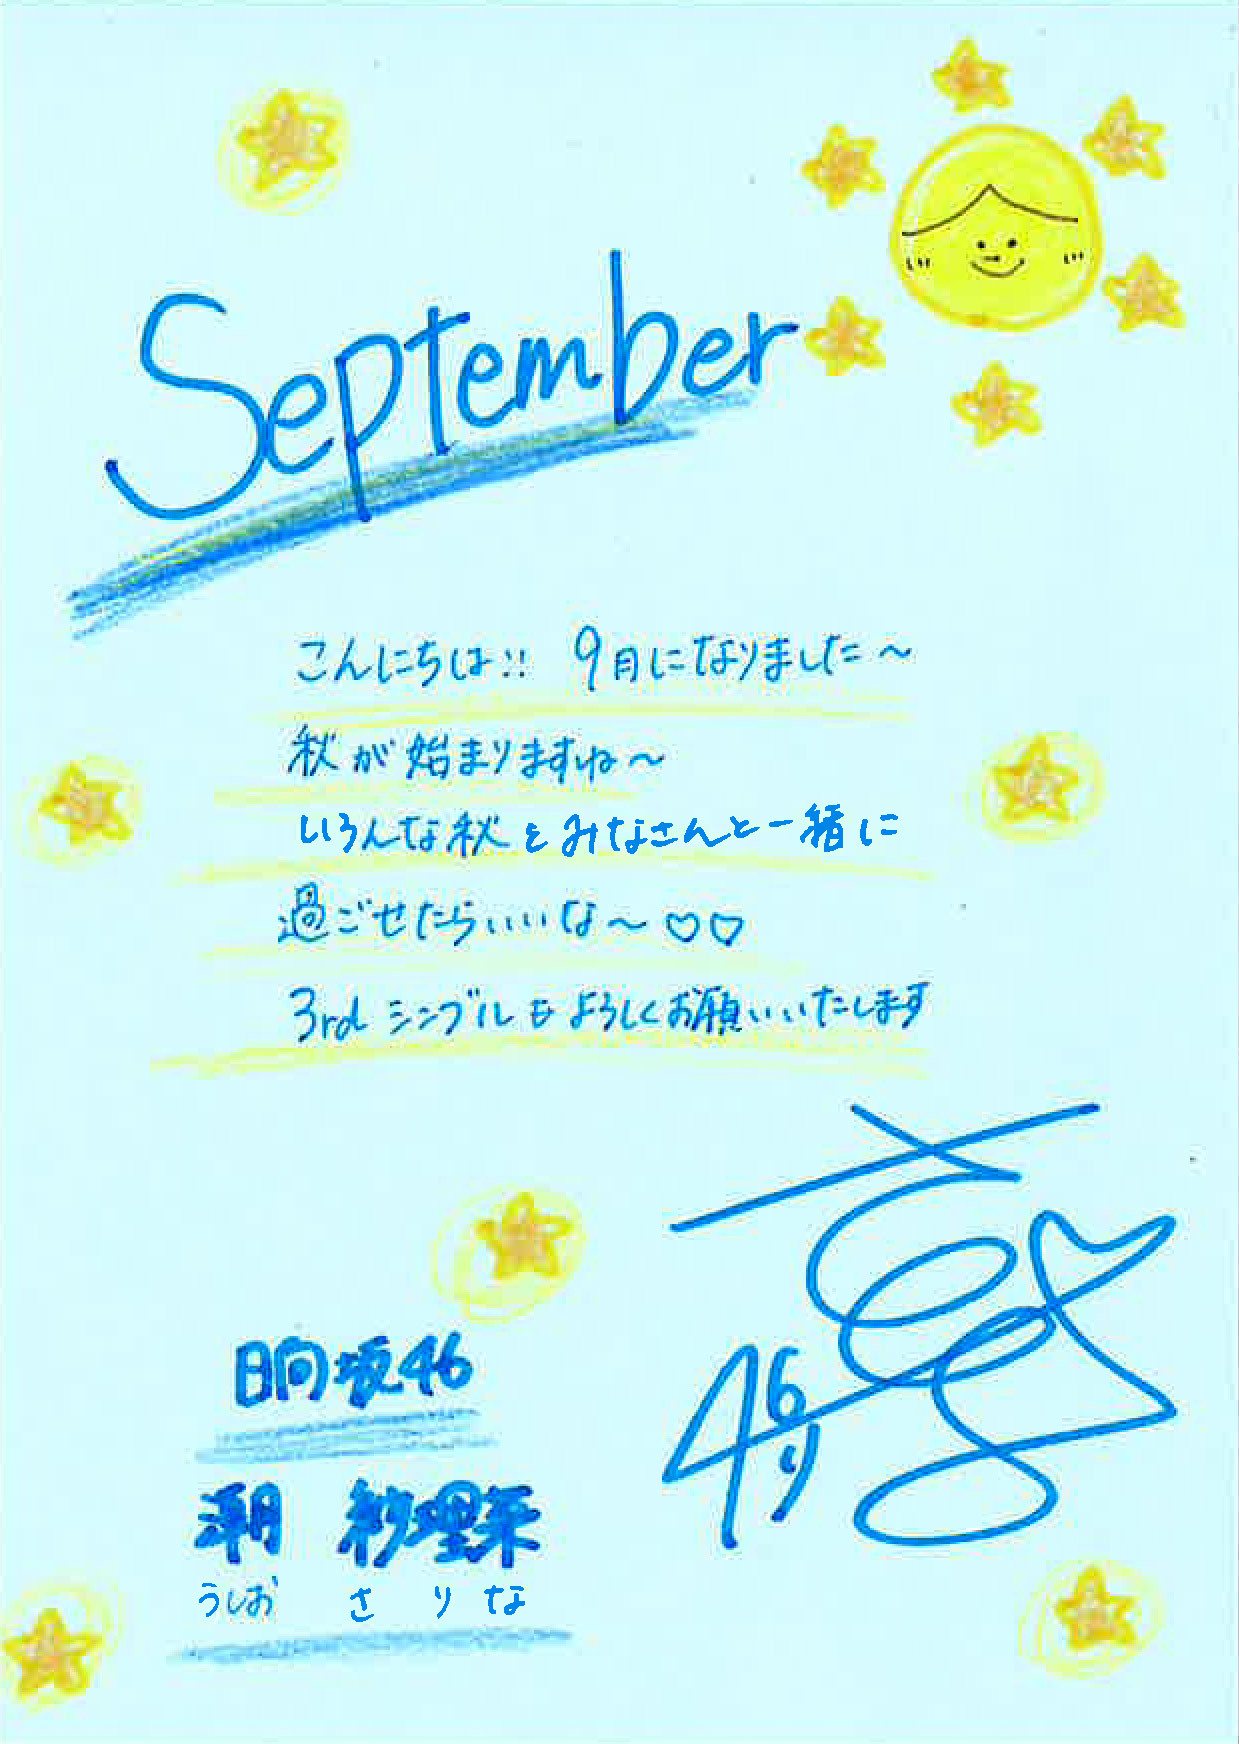 September
こんにちは!! 9月になりました〜
秋が始まりますね〜
いろんな秋をみなさんと一緒に
過ごせたらいいな〜♡♡
3rdシングルもよろしくお願いいたします
46
日向坂46
潮 紗理菜
うしお さ り な